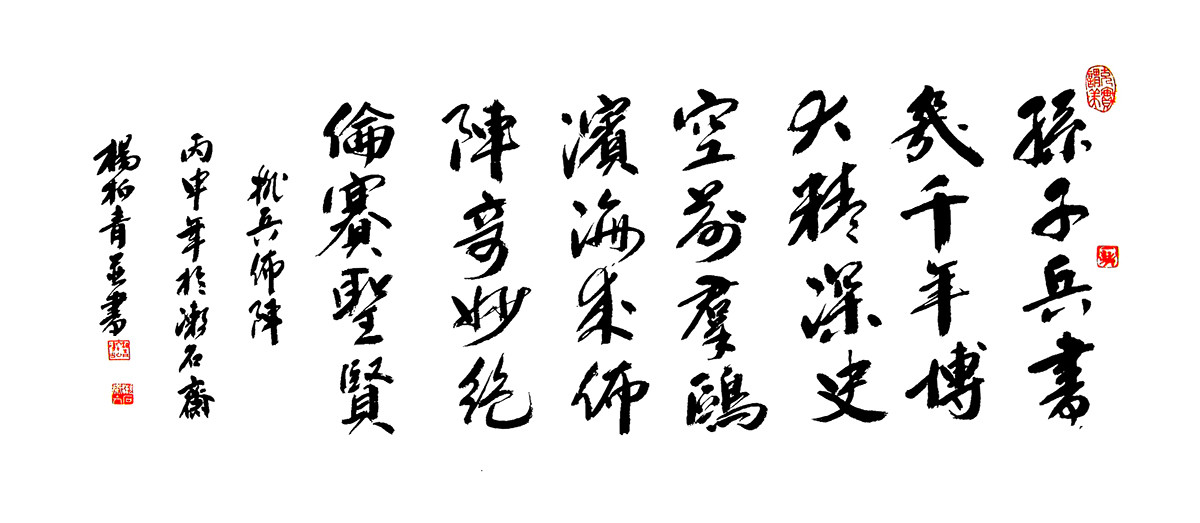 孫子兵書
幾千年博
大精深史
空前羣鷗
濱海來佈
陣奇妙絕
倫賽聖賢
排兵佈陣
丙申年於漱石齋
楊柏青並書